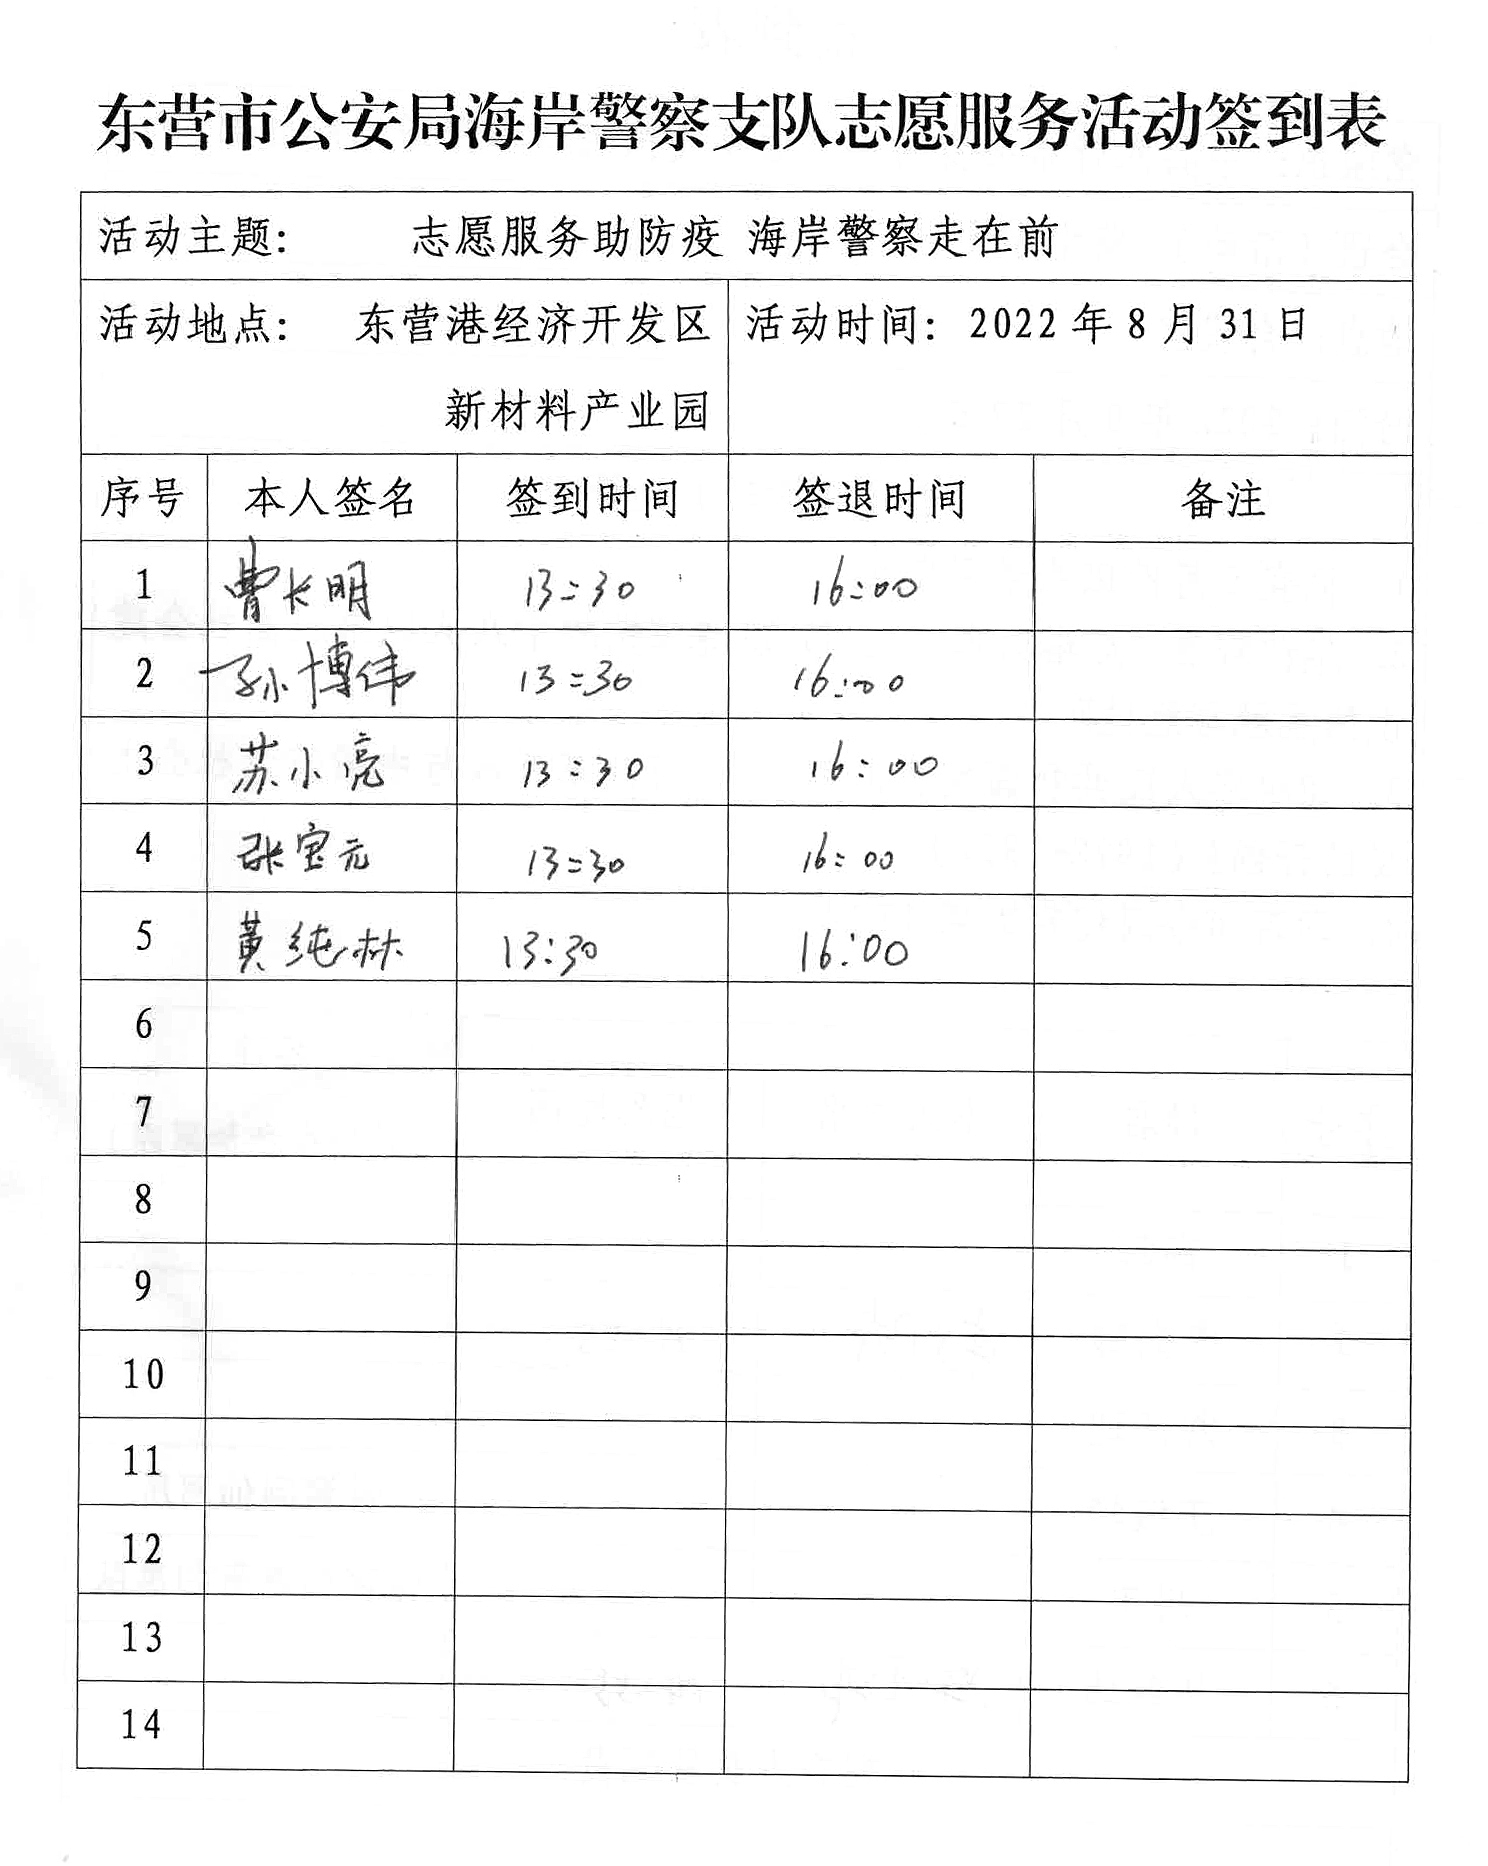 东营市公安局海岸警察支队志愿服务活动签到表
活动主题: 志愿服务助防疫 海岸警察走在前
活动地点: 东营港经济开发区
新材料产业园
活动时间: 2022年8月31日
序号 本人签名 签到时间 签退时间 备注
1 曹长明 13:30 16:00
2 孙博伟 13:30 16:00
3 苏小亮 13:30 16:00
4 张宝元 13:30 16:00
5 黄纯林 13:30 16:00
6
7
8
9
10
11
12
13
14